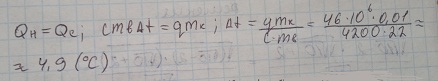 Qн = Qс; cmвΔt = qmк; Δt = qmк/c·mв = 46·10⁶·0,01/4200·22 =
≈ 4,9 (°C)